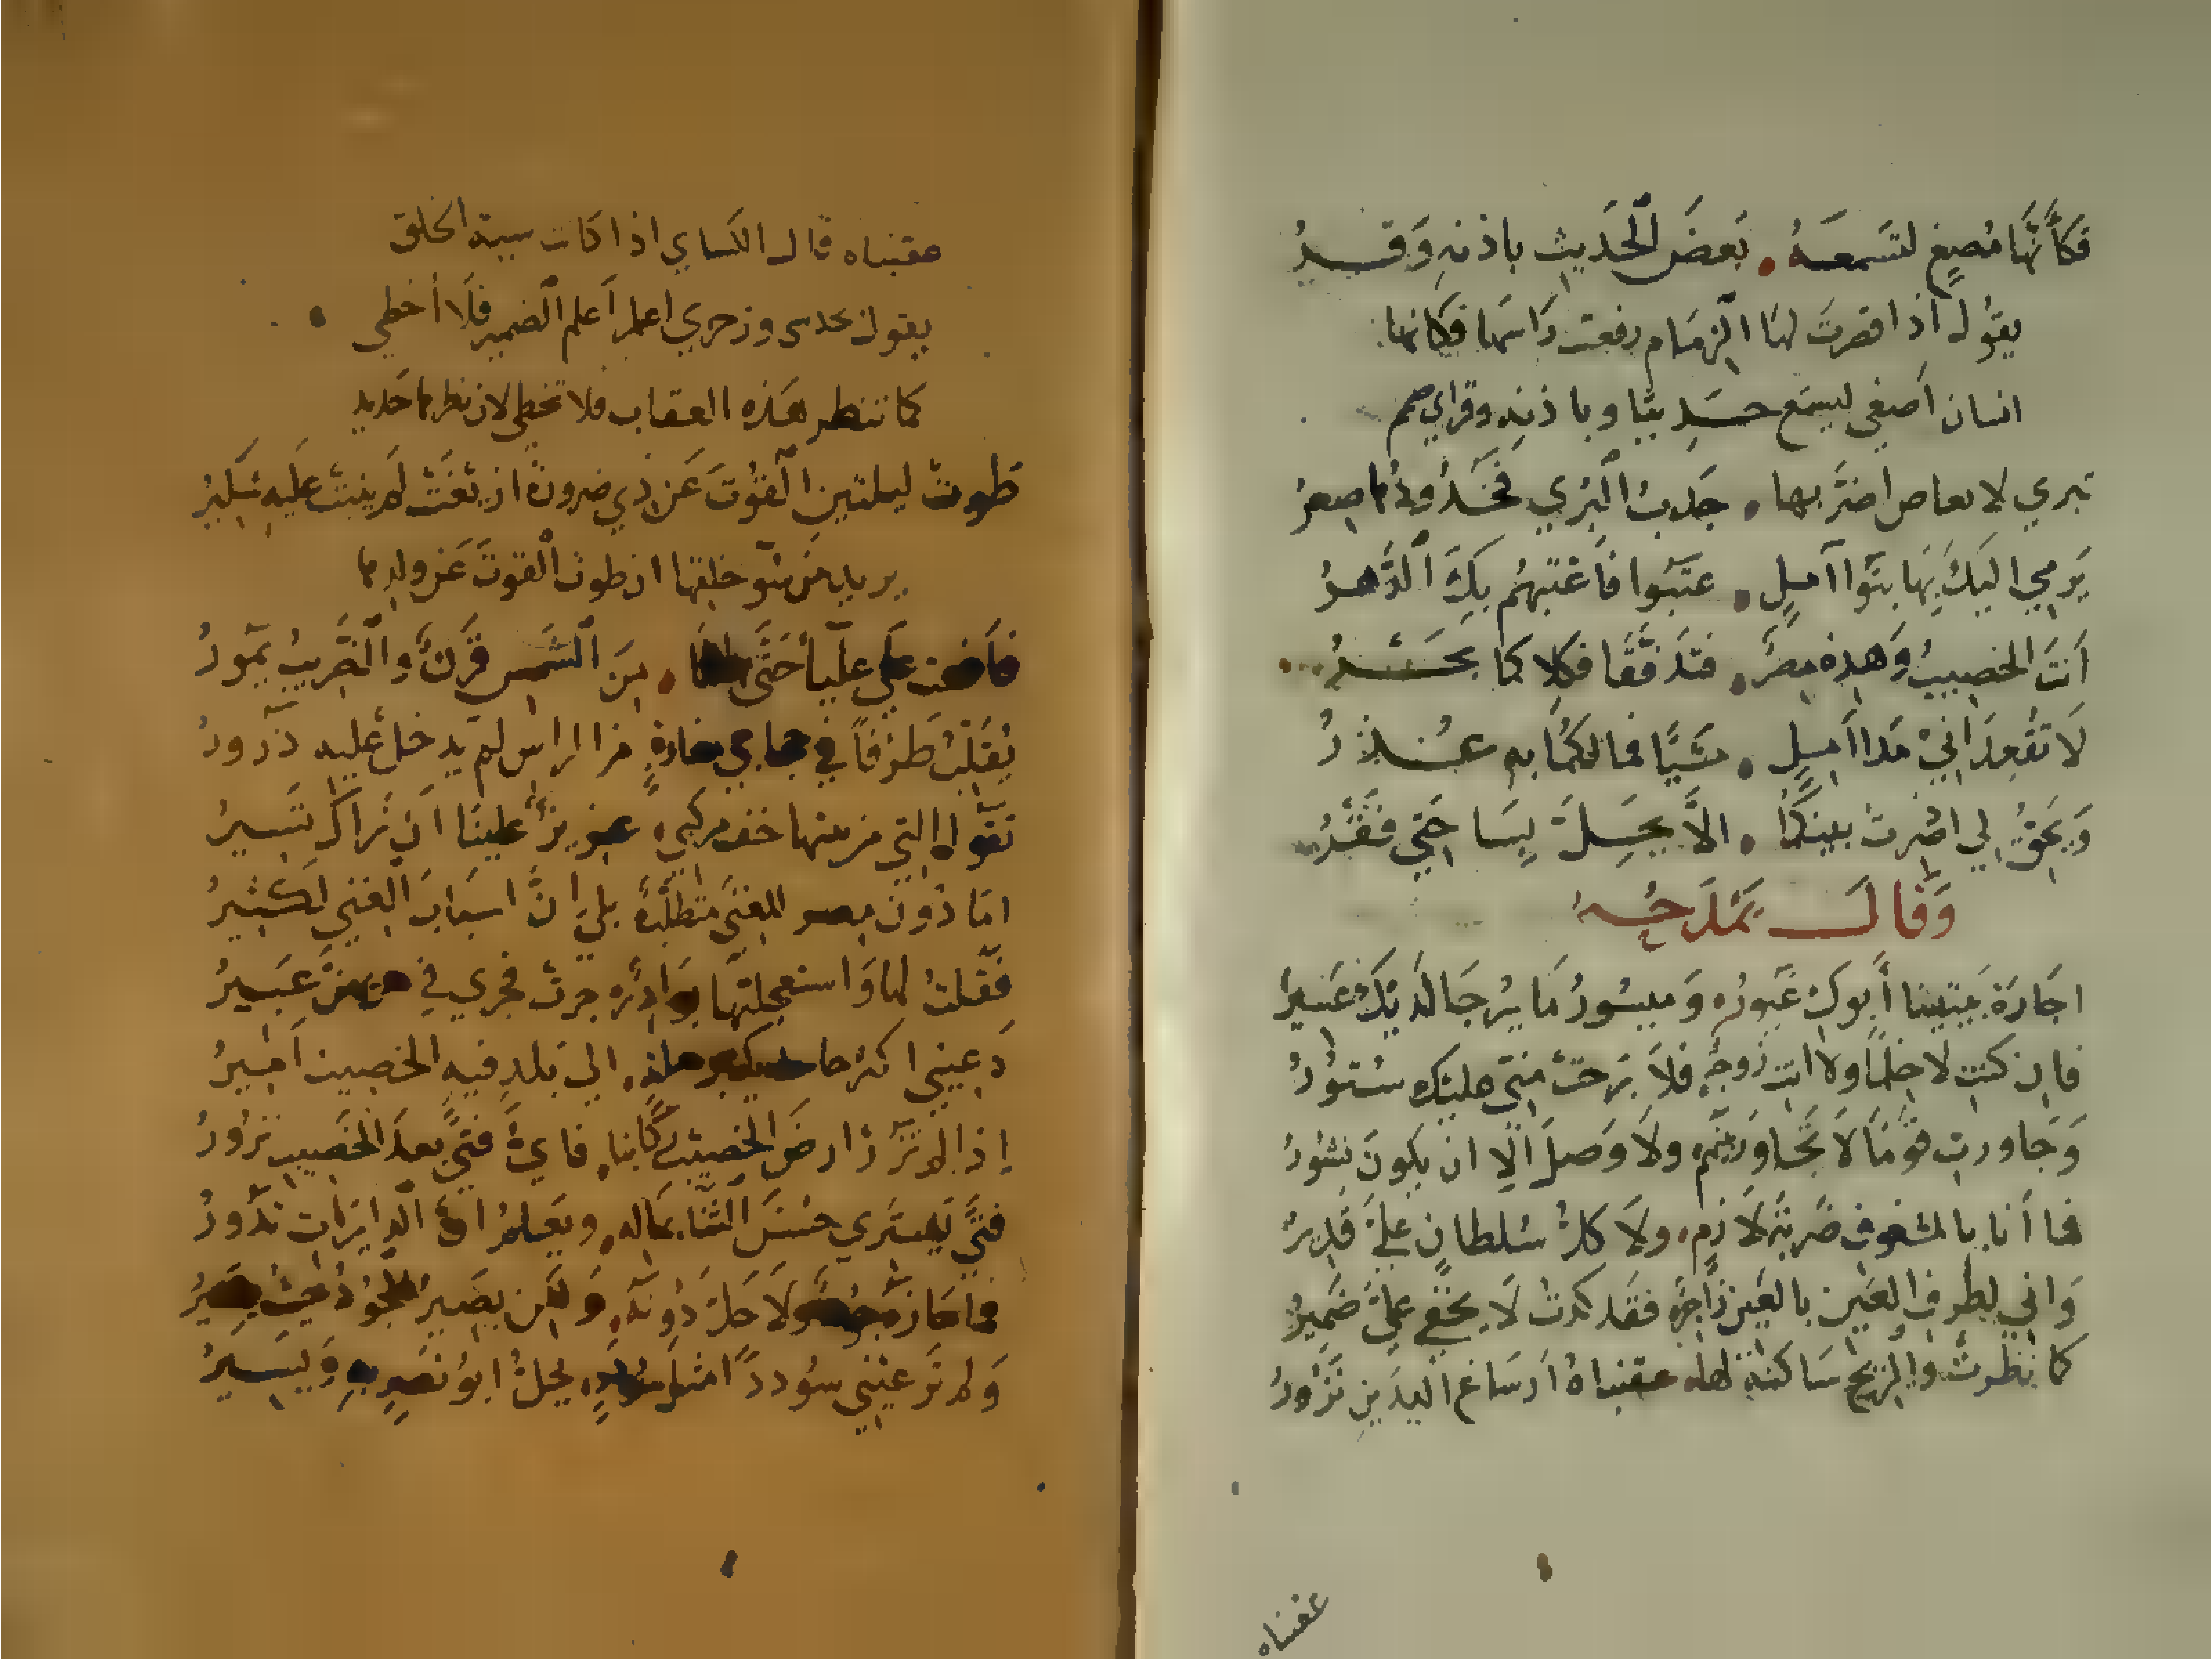 فَكَأَنَّهَا مُصِيغٍ لتَسمعَهُ • بَعضَ اَلحَدَيثِ باذنِهِ وَقـــرُ
يقُول اذا قصرتَ لهَا الزمَام رفعت رَاسَها فكانها
انسان اَصغى ليسمَع حَدِيثًا وباذنِه وقراي صمم
تبري لانعاص اضرَّ بها • جَذبُ اَلبُري فَخَدُودُها صعرُ
يَرمي اليكَ بِهَا بنَوا آمَلٍ • عتَبُوا فَاَعْتَبهُم بِكَ اَلدَّهــرُ
اَنتَ الخصيبُ وَهذه مِصرُ • فتَدَفَّقَا فكلا كما بَحــــرُ
لَا تَقْعِدَا بيَ عَن مَدا اَمَلٍ • شيًّا فمالكُمَا بهِ عــــذرُ
وَيَحقُّ لي اذ صرتُ بينكما • الاَّ يَحِلَّ بِسَاحَتي فَقْرُ
وَقَالَ يَمْدَحُــهُ
اجَارَةَ بَيتَينا أَبوكِ غَيورُ • وَميسُورُ مَا يُرجَا لَدَيكِ عَسيرُ
فان كنتِ لا خِلمًا ولا انتِ زَوجَةٍ فلاَ بَرِحَتْ مِنّي عليكِ سُتوُرُ
وَجَاورتِ قَومًا لاَ تَجَاورَ بينَهم ولاَ وَصلَ الاِ ان يكونَ نشُورُ
فما أنا بالمشغوفِ ضَربَةَ لاَزِم • ولاَ كلُّ سُلطانٍ عليَّ قَدِيرُ
وَاني لِطرفِ العَين بالعَين زَاجِرٌ فقَد كدتُ لاَ يَخفَى عليَّ ضَمِيرُ
كما نظَرتْ والريحُ سَاكنةٌ لها عقنباهُ اَرسَاغ اليدَينِ نَزُورُ
عقنباه
عقنباه قال الكساي اذا كانت سيية الخلق
يقول بحدسي وزجري اعلم اَعلم الضمير فلا أخطي
كما تنظر هَذه العقاب فلا تخطي لان نظرها حَديد
طَوتْ ليلتين القُوتَ عَن ذِي ضرورةٍ ازيغَبَ لَم ينبتْ عَليه شَكِيرُ
يريد من سُو خلقها ان طوت القوتَ عَن ولدها
فاَوفت علَى علياَ حَتَّى بدا لها • مِنَ الشمس قَرنٌ والضَّريبُ يَمورُ
يُقَلّبُ طَرْفًا في حجاجي مغارةٍ من الراس لم يَدخل عَليهِ ذَرُورُ
تَقُول التي من بيتها خف مركبي • عزيزٌ علينا أن نَراكَ تَسيرُ
امَا دُونَ مِصر للغِنَى مُتَطَلَّبٌ بلى اِنَّ اسبَابَ الغنى لَكثيرُ
فقُلتُ لها وَاستعجلتهَا بوَادِرٌ جرتْ فجري في جريهنَّ عَبيرُ
دَعيني اكثر حاسديكِ برحلةٍ • الى بَلدٍ فيهِ الخصيبُ اَمِيرُ
اِذا لم تَزُرْ ارضَ الخصيبِ ركَابنا • فايُّ فتًى بعدَ الخَصيبِ تَزُورُ
فتًى يَشترِي حُسنَ الثَّنَا بمَاله • ويَعلمُ انَّ الدايرَاتِ تَدُورُ
فما جَازَهُ جُودٌ ولاَ حَلَّ دُونَهُ • وَلكن يصَيرُ الجُودُ حَيثُ يَصِيرُ
وَلم تَرَ عَيني سُودداً مثلَ سُؤددٍ • يحلُّ ابوُ نَصرٍ بهِ وَيَسيرُ